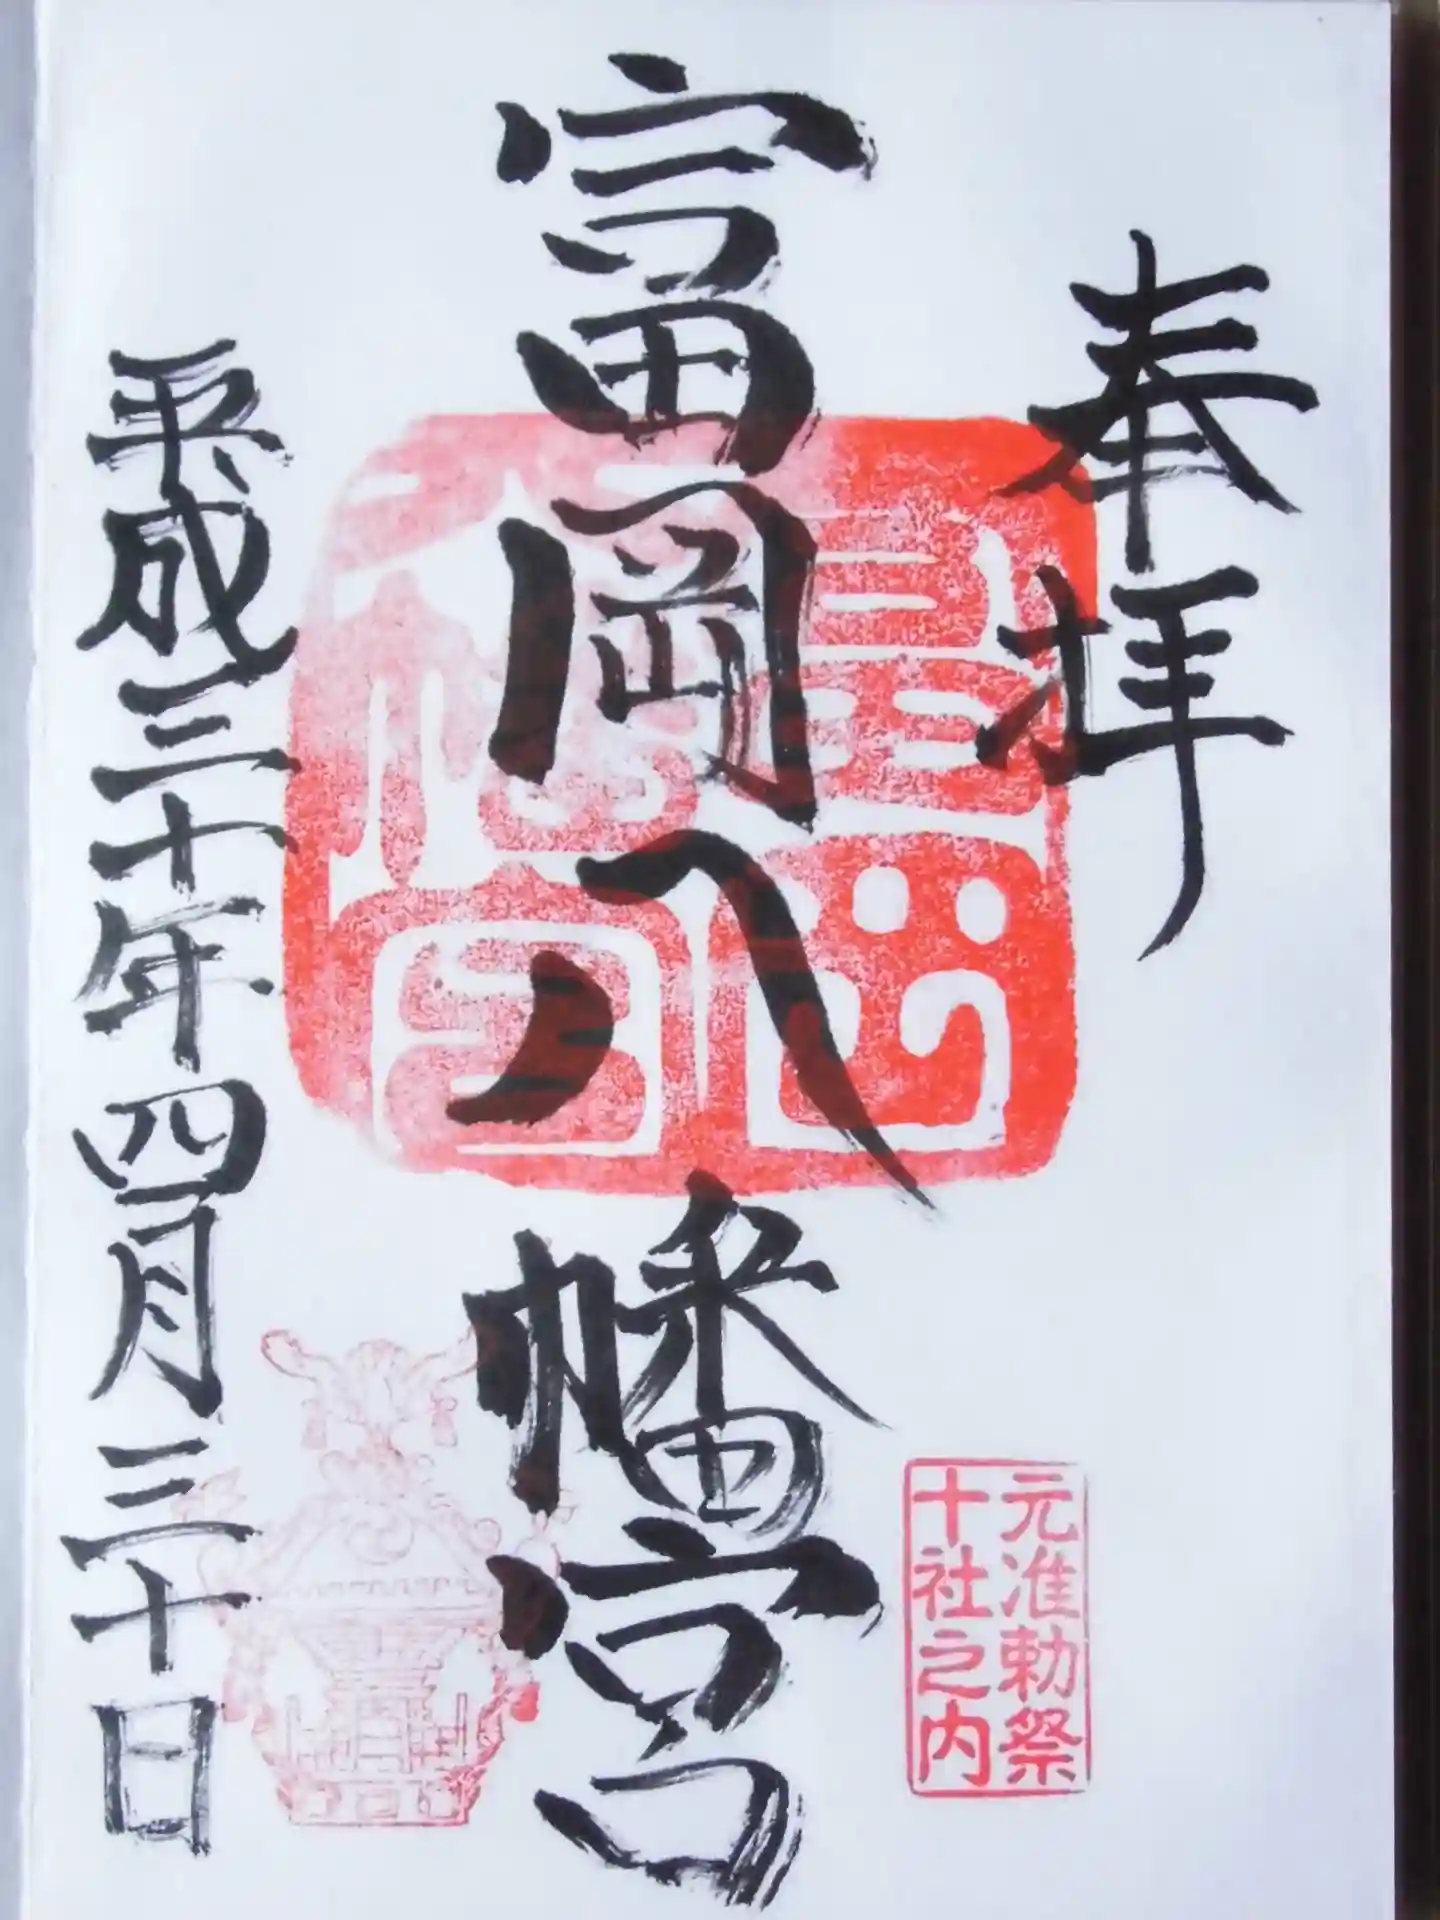 奉拝
元准勅祭
十社之内
富岡八幡宮
平成三十年四月三十日